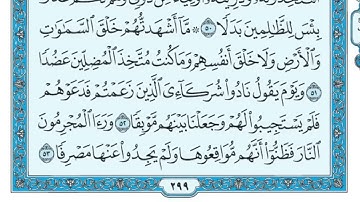 بِئْسَ لِلظَّـٰلِمِينَ بَدَلًا ٥٠ ۞ مَّآ أَشْهَدتُّهُمْ خَلْقَ ٱلسَّمَـٰوَٰتِ
وَٱلْأَرْضِ وَلَا خَلْقَ أَنفُسِهِمْ وَمَا كُنتُ مُتَّخِذَ ٱلْمُضِلِّينَ عَضُدًا
٥١ وَيَوْمَ يَقُولُ نَادُوا۟ شُرَكَآءِىَ ٱلَّذِينَ زَعَمْتُمْ فَدَعَوْهُمْ
فَلَمْ يَسْتَجِيبُوا۟ لَهُمْ وَجَعَلْنَا بَيْنَهُم مَّوْبِقًا ٥٢ وَرَءَا ٱلْمُجْرِمُونَ
ٱلنَّارَ فَظَنُّوٓا۟ أَنَّهُم مُّوَاقِعُوهَا وَلَمْ يَجِدُوا۟ عَنْهَا مَصْرِفًا ٥٣
٢٩٩